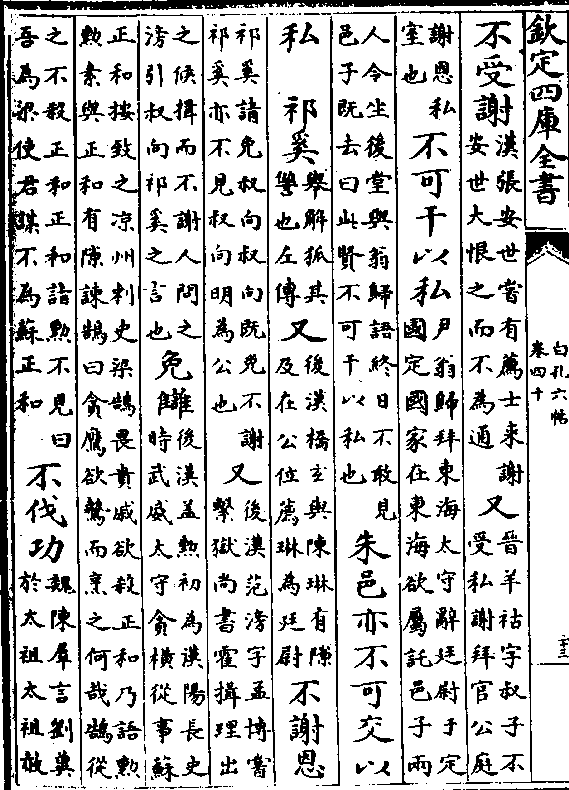 欽定四庫全書
白孔六帖
卷四十
不受謝漢張安世嘗有薦士来謝安世大恨之而不為通又晉羊祜字叔子不受私謝拜官公庭
謝恩私室也不可干以私尹翁歸拜東海太守辭廷尉于定國定國家在東海欲屬託邑子兩
人令坐後堂與翁歸語終日不敢見邑子既去曰此賢不可干以私也朱邑亦不可交以
私祁奚舉解狐其讐也左傳又後漢橋玄與陳琳有隙及在公位薦琳為廷尉不謝恩
祁奚請免叔向叔向既免不謝祁奚亦不見叔向明為公也又後漢范滂字孟博嘗繫獄尚書霍揖理出
之候揖而不謝人問之滂引叔向祁奚之言也免讎後漢蓋勲初為漢陽長史時武威太守貪橫從事蘇
正和按致之凉州刺史梁鵠畏貴戚欲殺正和乃語勲勲素與正和有隙諫鵠曰貪鷹欲鷙而烹之何哉鵠從
之不殺正和正和詣勲不見曰吾為梁使君謀不為蘇正和不伐功魏陳羣言劉廙於太祖太祖赦